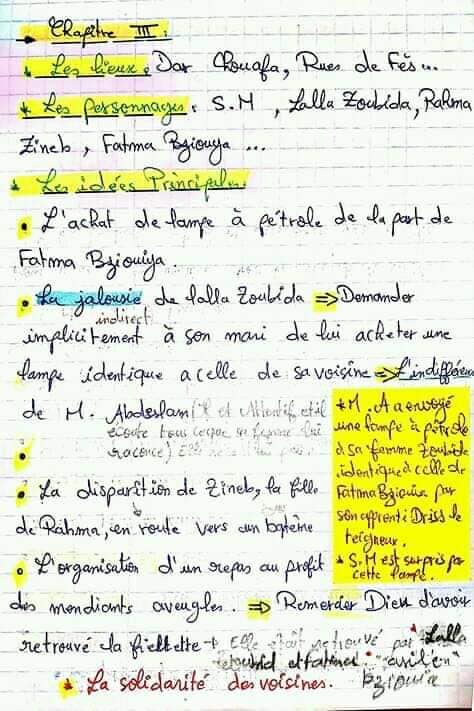 → Chapitre III :
* Les lieux : Dar Chouafa, Rues de Fès...
* Les personnages : S.M, Lalla Zoubida, Rahma
Zineb, Fatma Bziouya ...
* Les idées Principal
• L'achat de lampe à pétrole de la part de
Fatma Bziouiya.
• La jalousie de lalla Zoubida ⇒ Demander
indirect
implicitement à son mari de lui acheter une
lampe identique a celle de sa voisine ⇒ L'indifféren
de M. Abdeslam (Il est Attentif et il
écoute tous ce que sa femme lui
raconte) Elle
* M. A a envoyé
une lampe à pétrole
à sa femme Zoubida
identique à celle de
Fatma Bziouia par
son apprenti Driss le
teigneux.
* S.M est surpris par
cette lampe.
• La disparition de Zineb, la fille
de Rahma, en route vers un batême
• L'organisation d'un repas au profit
des mendiants aveugles. ⇒ Remercier Dieu d'avoir
retrouvé la fiellette + Elle était retrouvé par Lalla
Zoubid et Fatma
Bziouia
* La solidarité des voisines.